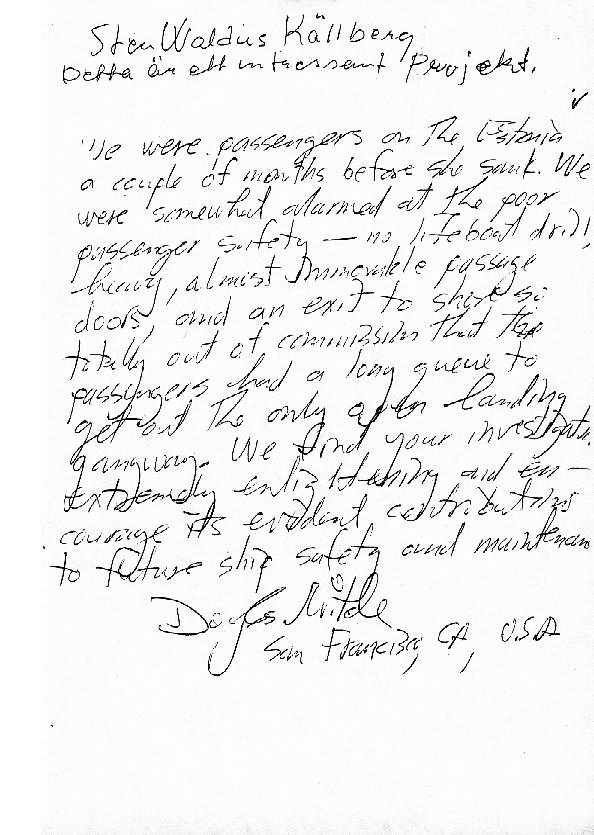 Sten Waldius Källberg
Detta är ett intressant projekt.
We were passengers on the Estonia
a couple of months before she sank. We
were somewhat alarmed at the poor
passenger safety — no lifeboat drill,
heavy, almost immovable passage
doors, and an exit to shore so
totally out of commission that the
passengers had a long queue to
get out the only open landing
gangway. We find your investigatn.
extremely enlightening and en-
courage its evident contributions
to future ship safety and maintenanc
San Francisco, CA, USA